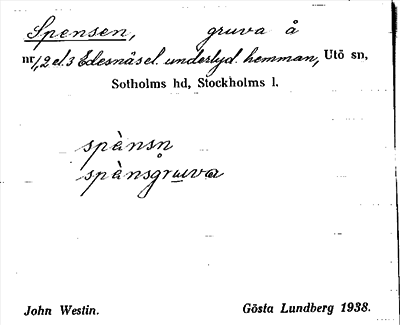 Spensen, gruva å
nr 1,2 el. 3 Edesnäs el. underlyd. hemman, Utö sn,
Sotholms hd, Stockholms l.
spànsn
spànsgruva
John Westin. Gösta Lundberg 1938.